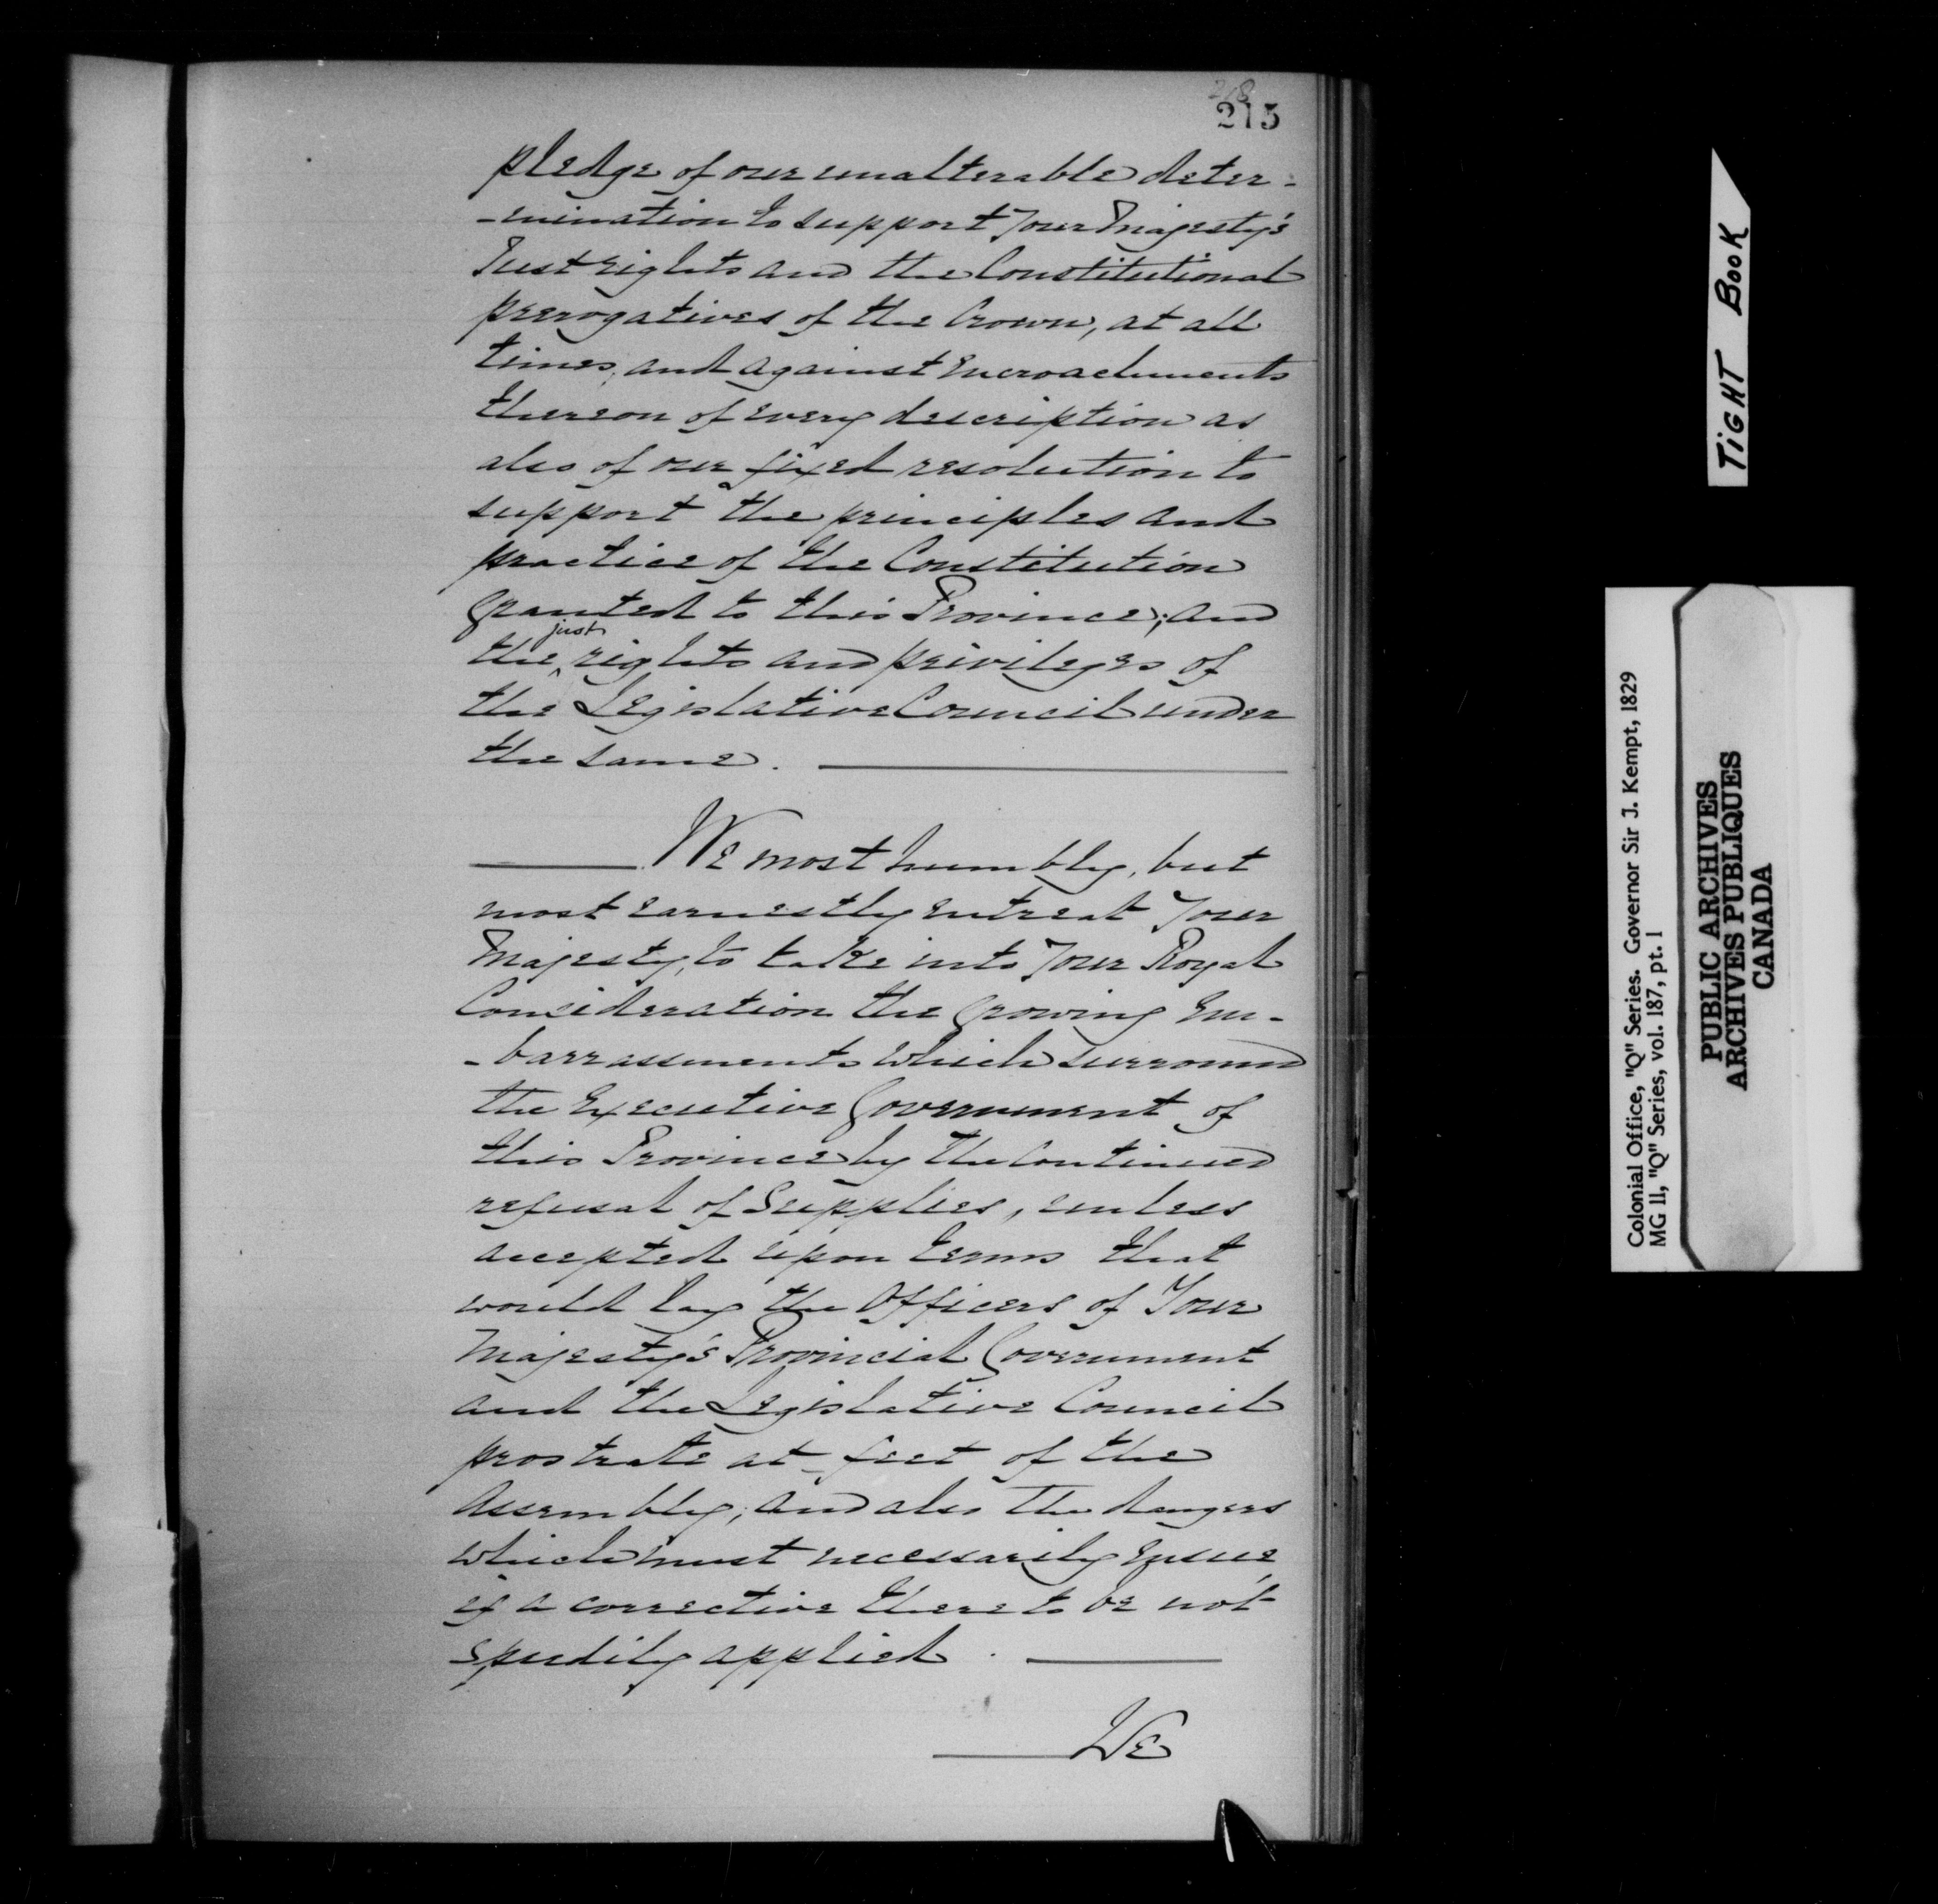 218
215
pledge of our unalterable deter-
-mination to support Your Majesty's
Just rights and the Constitutional
prerogatives of the Crown, at all
times, and against Encroachments
thereon of every description as
also of our fixed resolution to
support the principles and
practice of the Constitution
Granted to this Province; and
just
the rights and privileges of
the Legislative Council under
the same.
We most humbly, but
most earnestly Entreat Your
Majesty, to take into Your Royal
Consideration the Growing Em-
-barrassments which surround
the Executive Government of
this Province by the Continued
refusal of Supplies, unless
accepted upon terms that
would lay the Officers of Your
Majesty's Provincial Government
and the Legislative Council
prostrate at feet of the
Assembly; and also The dangers
which must necessarily Ensue,
if a corrective thereto be not
Speedily applied.
We
TIGHT BOOK
Colonial Office, "Q" Series. Governor Sir J. Kempt, 1829
MG 11, "Q" Series, vol. 187, pt. 1
PUBLIC ARCHIVES
ARCHIVES PUBLIQUES
CANADA